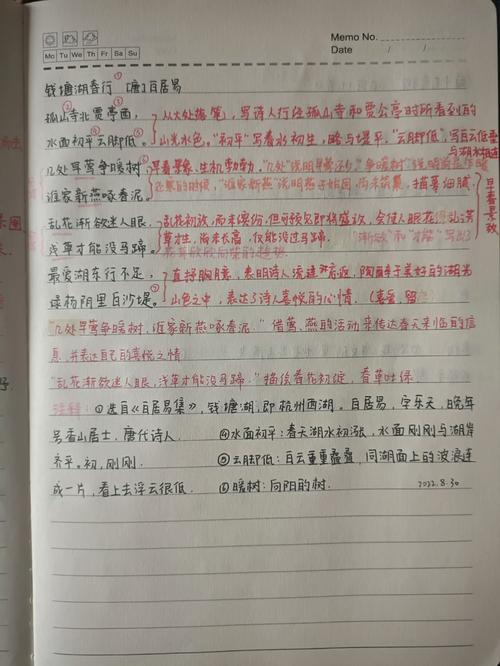 Memo No.
Mo Tu We Th Fr Sa Su
Date / /
钱塘湖春行 ① [唐] 白居易
孤山寺北贾亭西, 从大处落笔,写诗人行经孤山寺和贾公亭时所看到的
水面初平云脚低。 山光水色。"初平"写春水初生,略与堤平。"云脚低",写白云低垂
与湖水相连
几处早莺争暖树, 早春景象,生机勃勃。"几处"说明早莺还少,"争暖树"说明
的时候,"谁家新燕"说明燕子始回,尚未筑巢,描写细腻
谁家新燕啄春泥。
早春景致
乱花渐欲迷人眼, 乱花初放,而未缤纷,但可预见即将盛放,会使人眼花缭乱;芳
浅草才能没马蹄。 草才生,尚未长高,仅能没过马蹄。 "渐欲"和"才能"写出了
花草欣欣向荣的趋势
最爱湖东行不足, 直接胸臆,表明诗人流连忘返,陶醉于美好的湖光
绿杨阴里白沙堤。 山色之中,表达了诗人喜悦的心情。(喜爱,留
"几处早莺争暖树,谁家新燕啄春泥。"借莺、燕的活动来传达春天来临的信
息,并表达自己的喜悦之情
"乱花渐欲迷人眼,浅草才能没马蹄。"描绘春花初绽,春草吐绿
注释:①选自《白居易集》,钱塘湖,即杭州西湖。白居易,字乐天,晚年
号香山居士,唐代诗人. ④水面初平:春天湖水初涨,水面刚刚与湖岸
齐平。初,刚刚. ⑤云脚低:白云重重叠叠,同湖面上的波浪连
成一片,看上去浮云很低. ⑥暖树:向阳的树. 2022.8.30